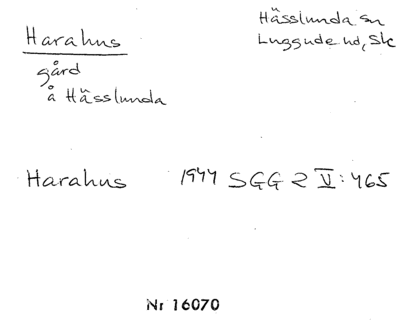 Harahus
gård
å Hässlunda
Hässlunda sn
Luggude hd, Sk
Harahus 1944 SGG 2 V: 465
Nr 16070